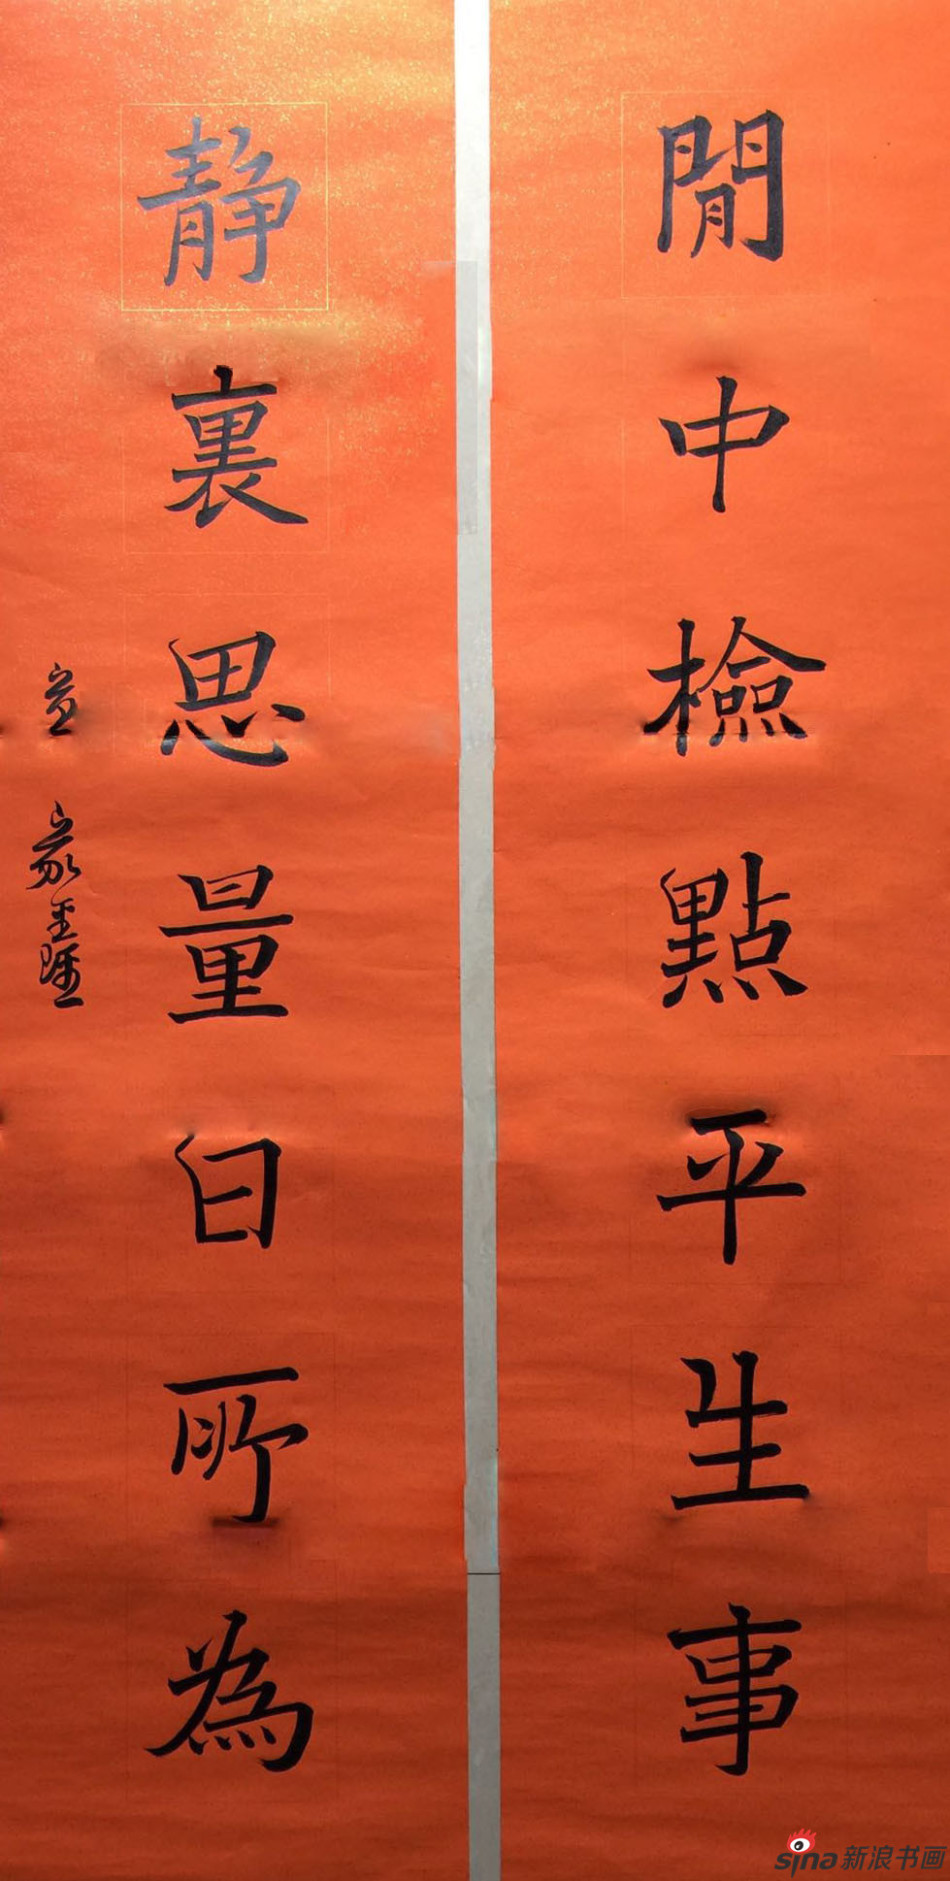 閒中檢點平生事
靜裏思量日所為
sina新浪书画